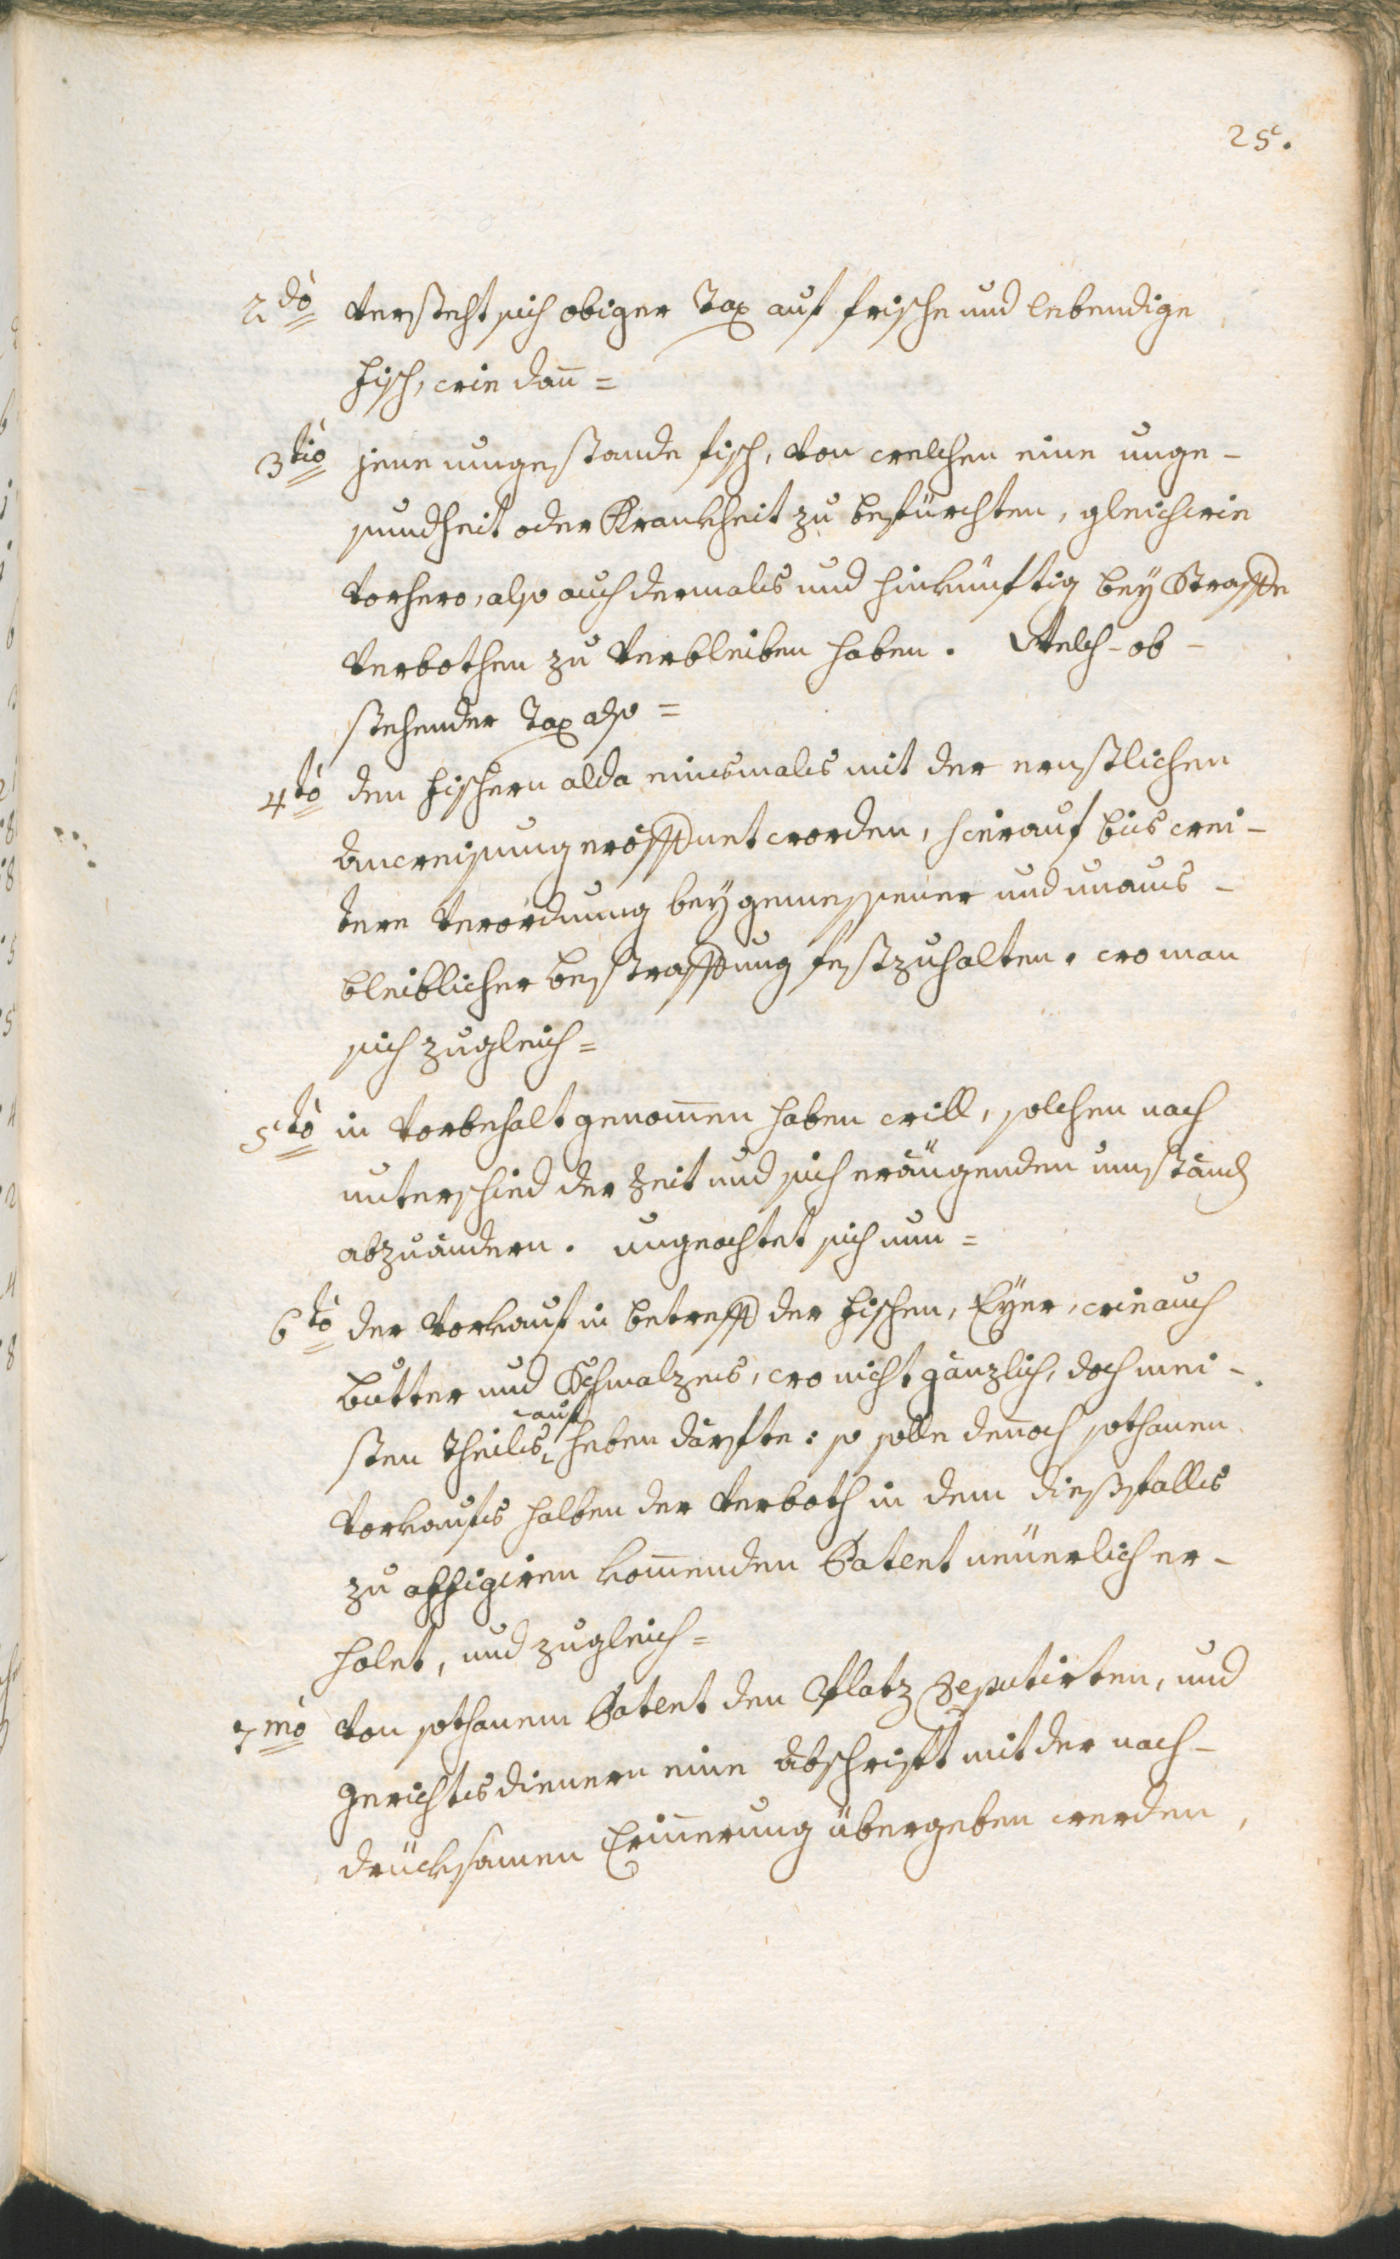 25.
2do versteht sich obiger Tax auf frische und lebendige
Fisch, wie dan̄ =
3tio jene umgestande fisch, von welchen eine unge-
sundheit oder Krankheit zu befürchten, gleichwie
vorhero, also auch dermals und hinkünftig bey Straffe
verbothen zu verbleiben haben. Welch-ob-
stehender Tax also =
4to den Fischern alda einsmals mit der ernstlichen
anweisung eröffnet worden, hierauf bis wei-
tere Verordnung bey gemessener und unaus-
bleiblicher bestraffung festzuhalten. wo man
sich zugleich =
5to in Vorbehalt genom̄en haben will, solchen nach
unterschied der Zeit und sich eräugenden umständ
abzuändern. ungeachtet sich nun =
6to der Vorkauf in betreff der Fischen, Eyer, wie auch
butter und Schmalzes, wo nicht gänzlich, doch mei-
auf
sten Theils heben därfte: so solle den̄och sothanen
Vorkaufs halben der Verboth in dem diesfalls
zu affigiren kom̄enden Patent neüerlich er-
holet, und zugleich =
7mo von sothanem Patent den Platz Deputirten, und
Gerichtsdienern eine Abschrift mit der nach-
drücksamen Erin̄erung übergeben werden,